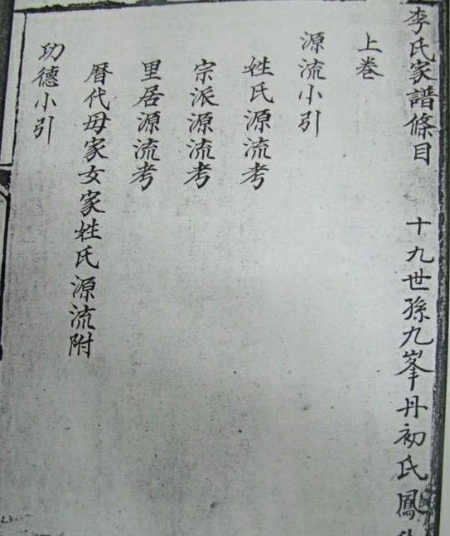 李氏家譜條目　十九世孫九峯丹初氏鳳
上巻
源流小引
姓氏源流考
宗派源流考
里居源流考
暦代母家女家姓氏源流附
功德小引